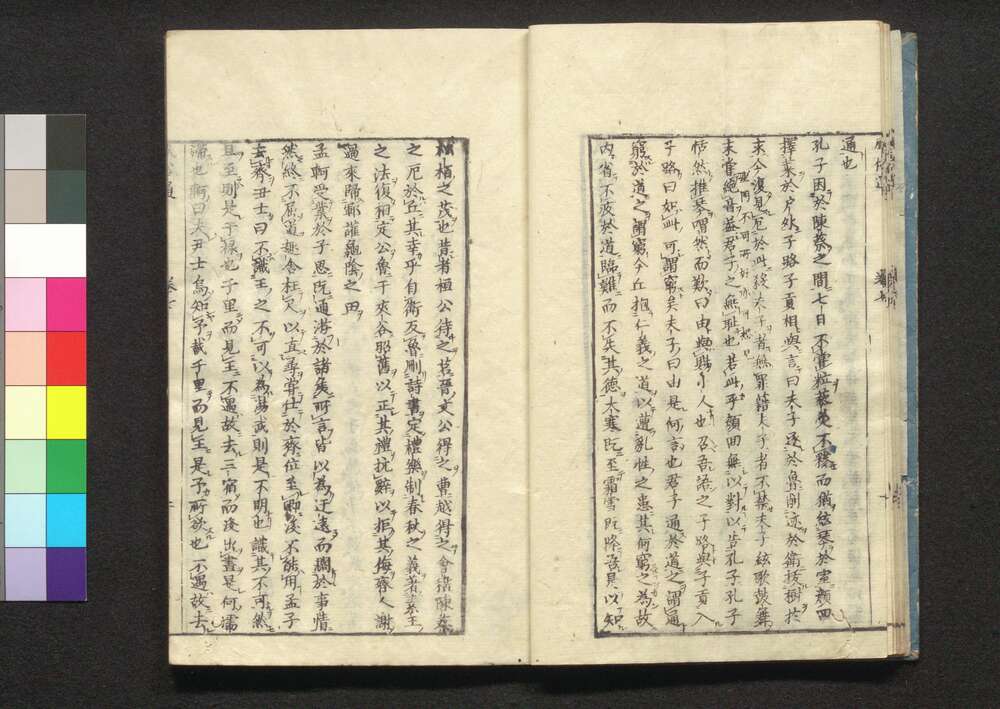 通也
孔子困於陳蔡之間七日不嘗粒藜羹不糝而猶絃琴於室顏回
擇菜於戶外子路子貢相與言曰夫子逐於魯削迹於衛拔樹於
宋今復見厄於此殺夫子者無罪籍夫子者不禁夫子絃歌鼓舞
未嘗絕音蓋君子之無恥也若此乎顏回無以對以告孔子孔子
恬然推琴喟然而歎曰由與賜小人也召吾語之子路與子貢入
子路曰如此可謂窮矣夫子曰由是何言也君子通於道之謂通
窮於道之謂窮今丘抱仁義之道以遭亂世之患其何窮之為故
內省不疚於道臨難而不失其德大寒既至霜雪既降吾是以知
松栢之茂也昔者桓公得之莒晉文公得之曹越得之會稽陳蔡
之厄於丘其幸乎自衛反魯刪詩書定禮樂制春秋之義著素王
之法復相定公魯干夾谷昭舊以正其禮抗辭以拒其侮齊人謝
過來歸鄆讙龜陰之田
孟軻受業於子思既通游於諸侯所言皆以為迂遠而闊於事情
然終不屈道趣舍枉尺以直尋嘗仕於齊位至卿後不能用孟子
去齊尹士曰不識王之不可以為湯武則是不明也識其不可然
且至則是干祿也千里而見王不遇故去三宿而後出晝是何濡
滯也軻曰夫尹士烏知予哉千里而見王是予所欲也不遇故去